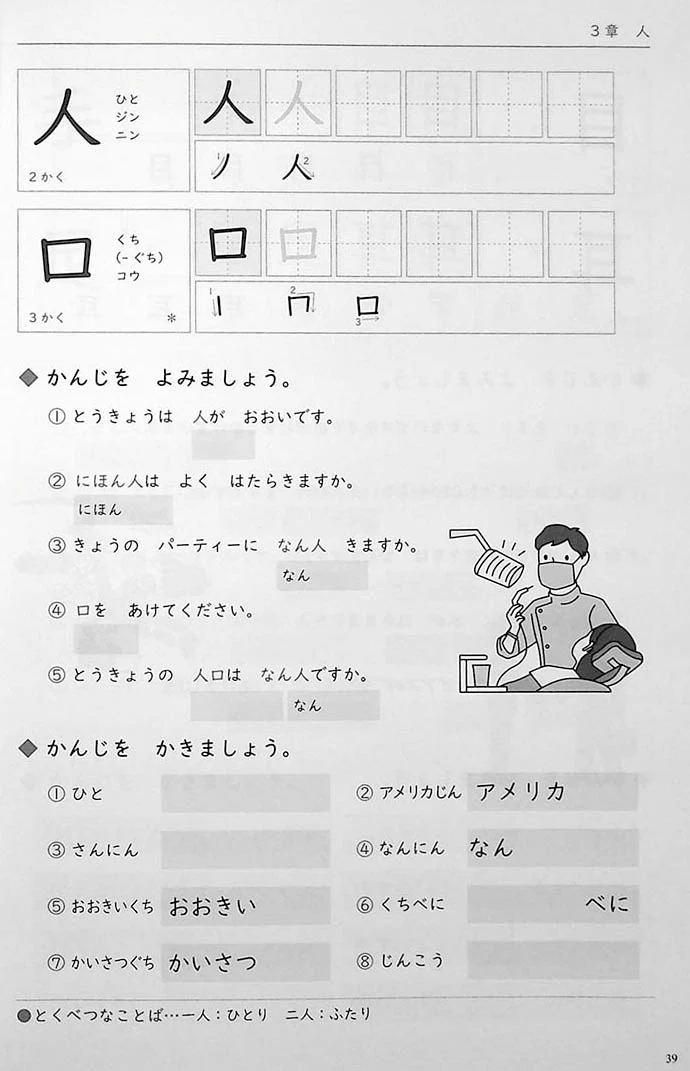 3章　人
人
ひと
ジン
ニン
2かく
人 人
1 ノ 2 人
口
くち
(-ぐち)
コウ
3かく ＊
口 口
1 2 3 口
◆ かんじを　よみましょう。
① とうきょうは　人が　おおいです。
② にほん人は　よく　はたらきますか。
にほん
③ きょうの　パーティーに　なん人　きますか。
なん
④ 口を　あけてください。
⑤ とうきょうの　人口は　なん人ですか。
なん
◆ かんじを　かきましょう。
① ひと ② アメリカじん アメリカ
③ さんにん ④ なんにん なん
⑤ おおきいくち おおきい ⑥ くちべに べに
⑦ かいさつぐち かいさつ ⑧ じんこう
●とくべつなことば…一人：ひとり　二人：ふたり
39